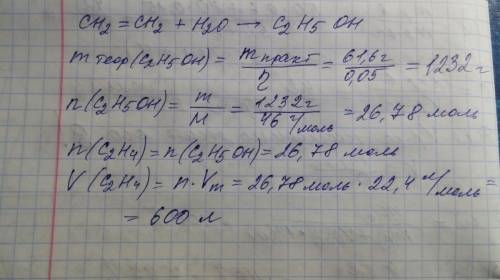 CH₂=CH₂ + H₂O → C₂H₅OH
m теор(C₂H₅OH) = m практ / η = 61,6 г / 0,05 = 1232 г
n(C₂H₅OH) = m / M = 1232 г / 46 г/моль = 26,78 моль
n(C₂H₄) = n(C₂H₅OH) = 26,78 моль
V(C₂H₄) = n · Vm = 26,78 моль · 22,4 л/моль =
= 600 л